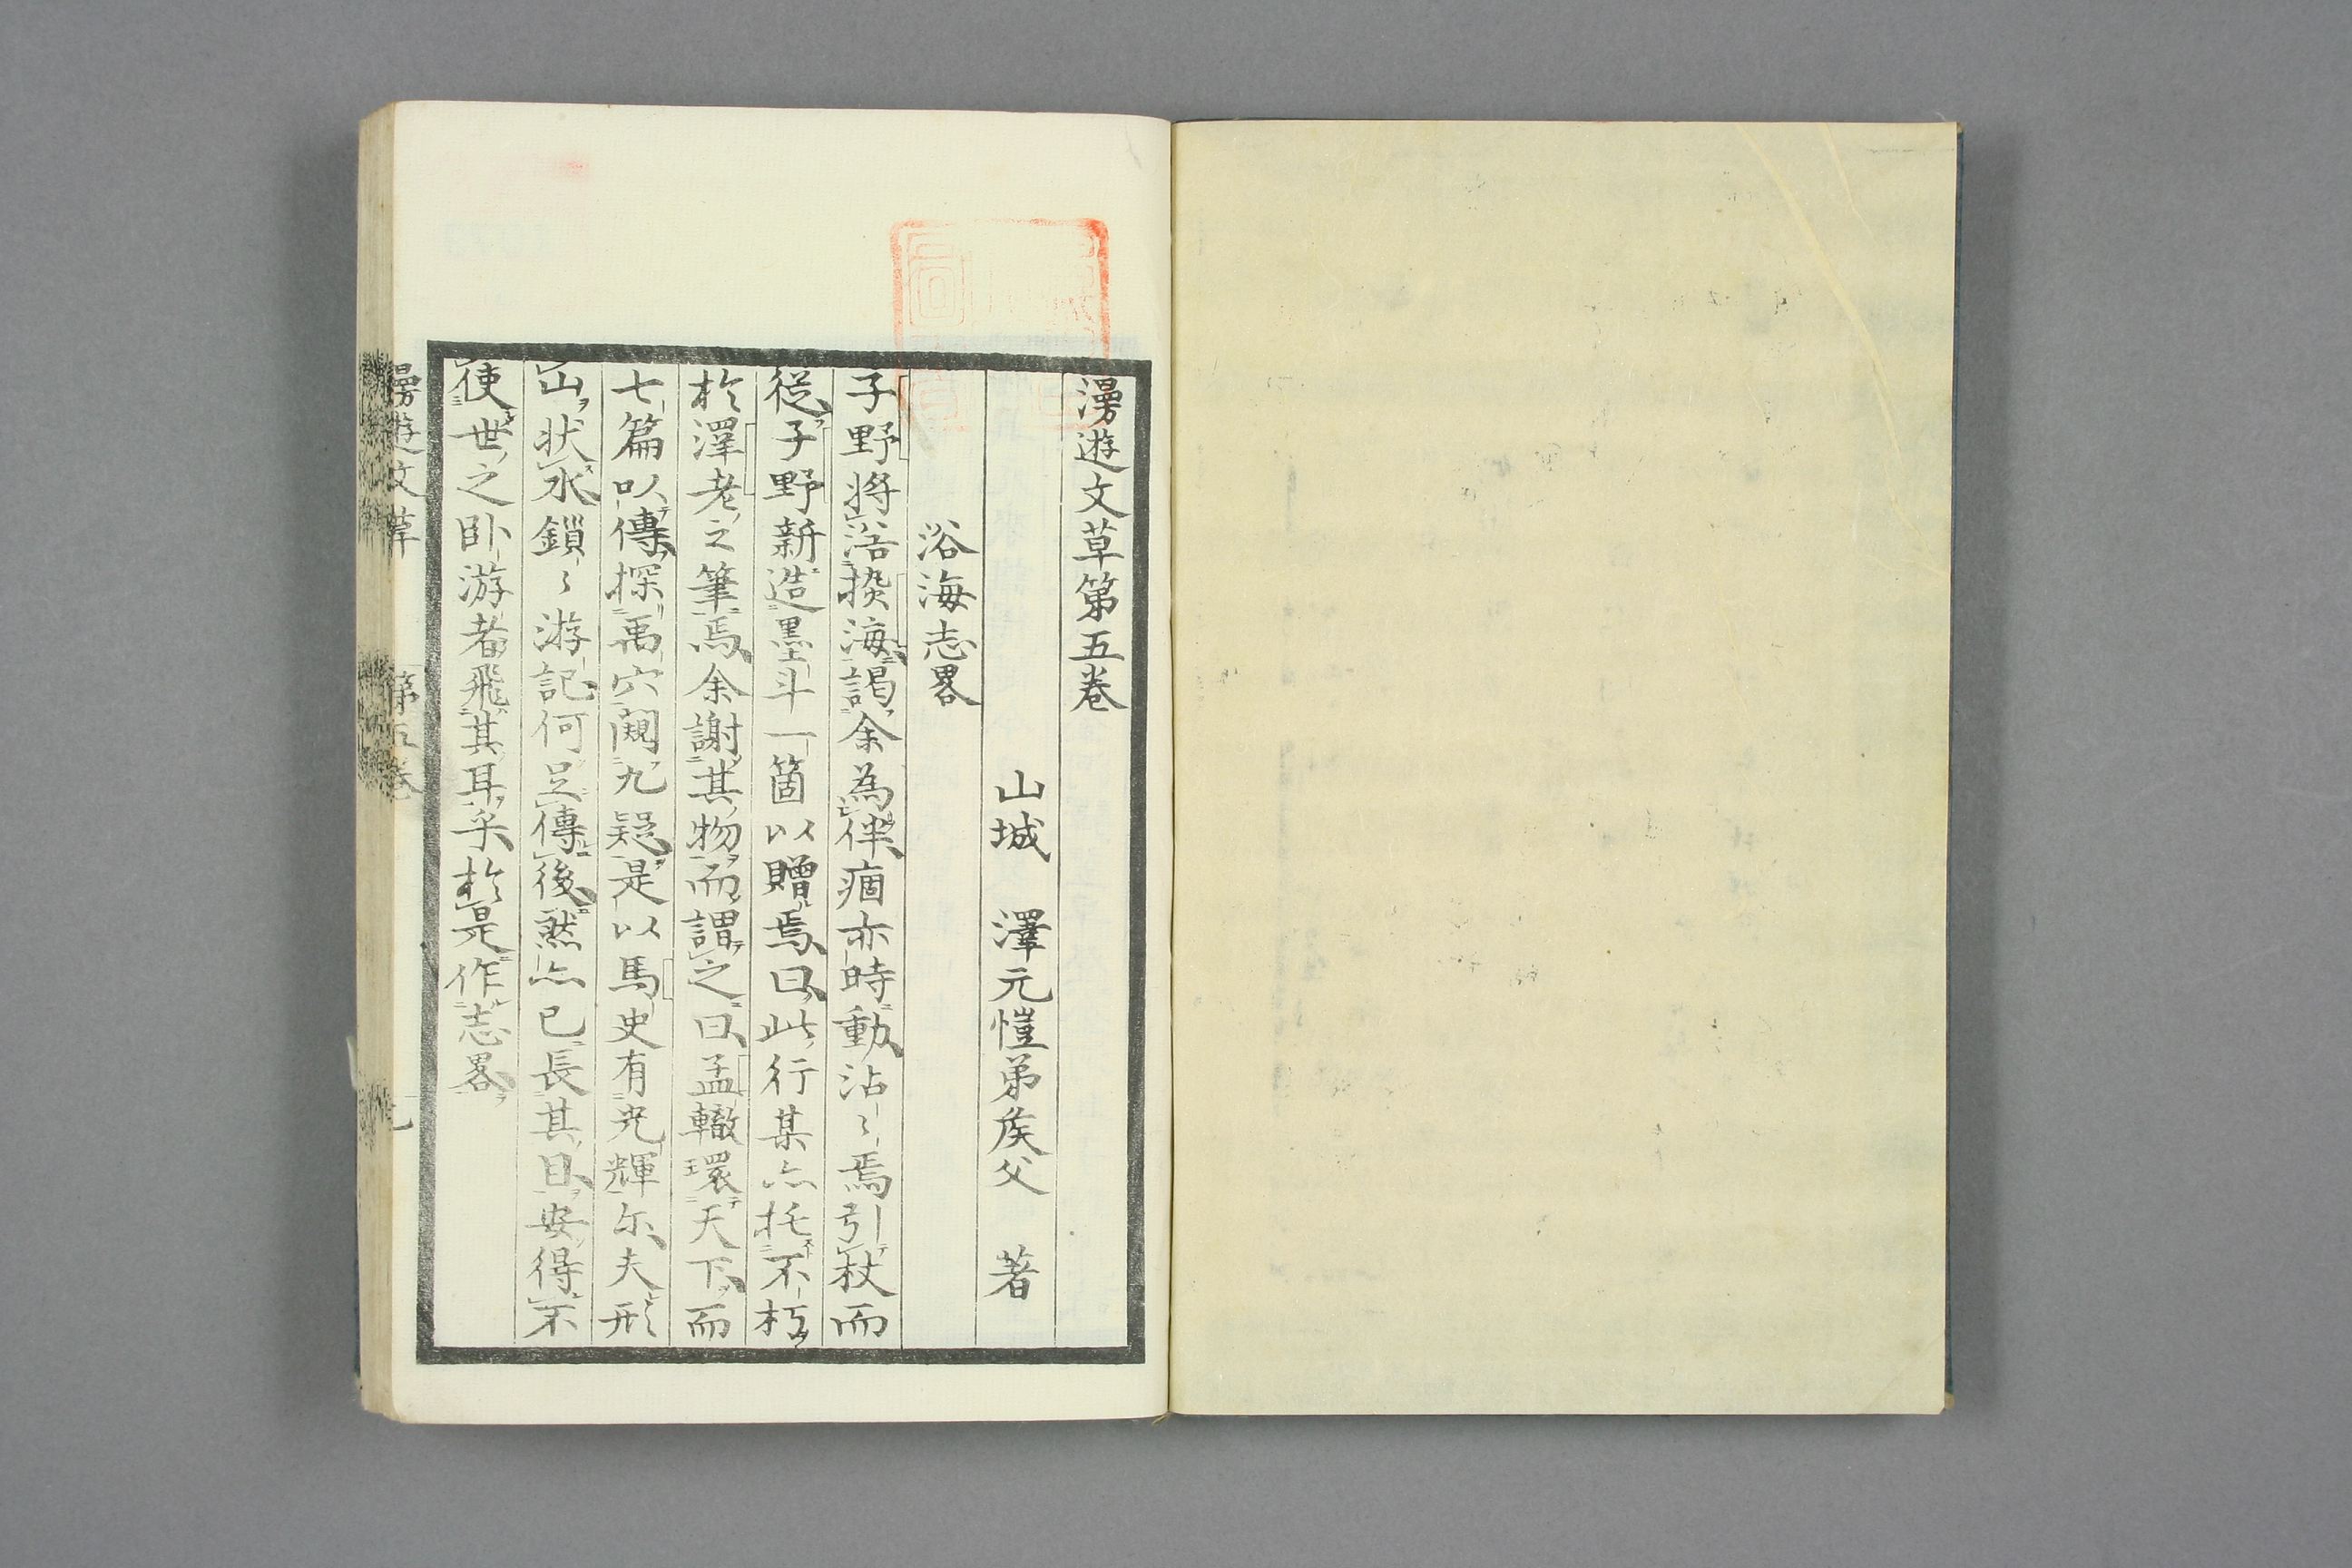 漫遊文草第五卷
山城　澤元愷弟矦父　著
浴海志畧
子野將浴𤍠海謁余為伴痼亦時動沾〻焉引杖而
従子野新造墨斗一箇以贈焉曰此行某亦托不朽
於澤老之筆焉余謝其物而謂之曰孟轍環天下而
七篇以傳探禹穴闚九疑是以馬史有光輝尓夫形
山状水鎖〻游記何足傳後然亦已長其目安得不
使世之卧游者飛其耳乎於是作志畧
漫遊文草　第五卷